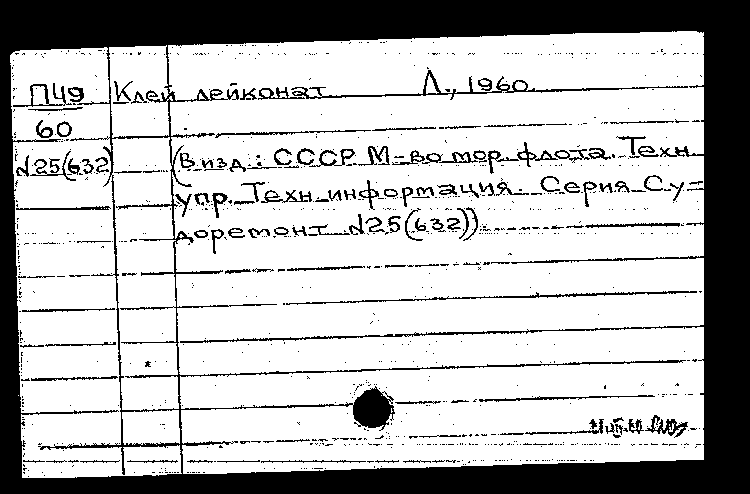 П49 Клей лейконат Л., 1960.
60
№25(632) (В изд.: СССР М-во мор. флота. Техн.
упр. Техн. информация. Серия Су=
доремонт №25(632)).